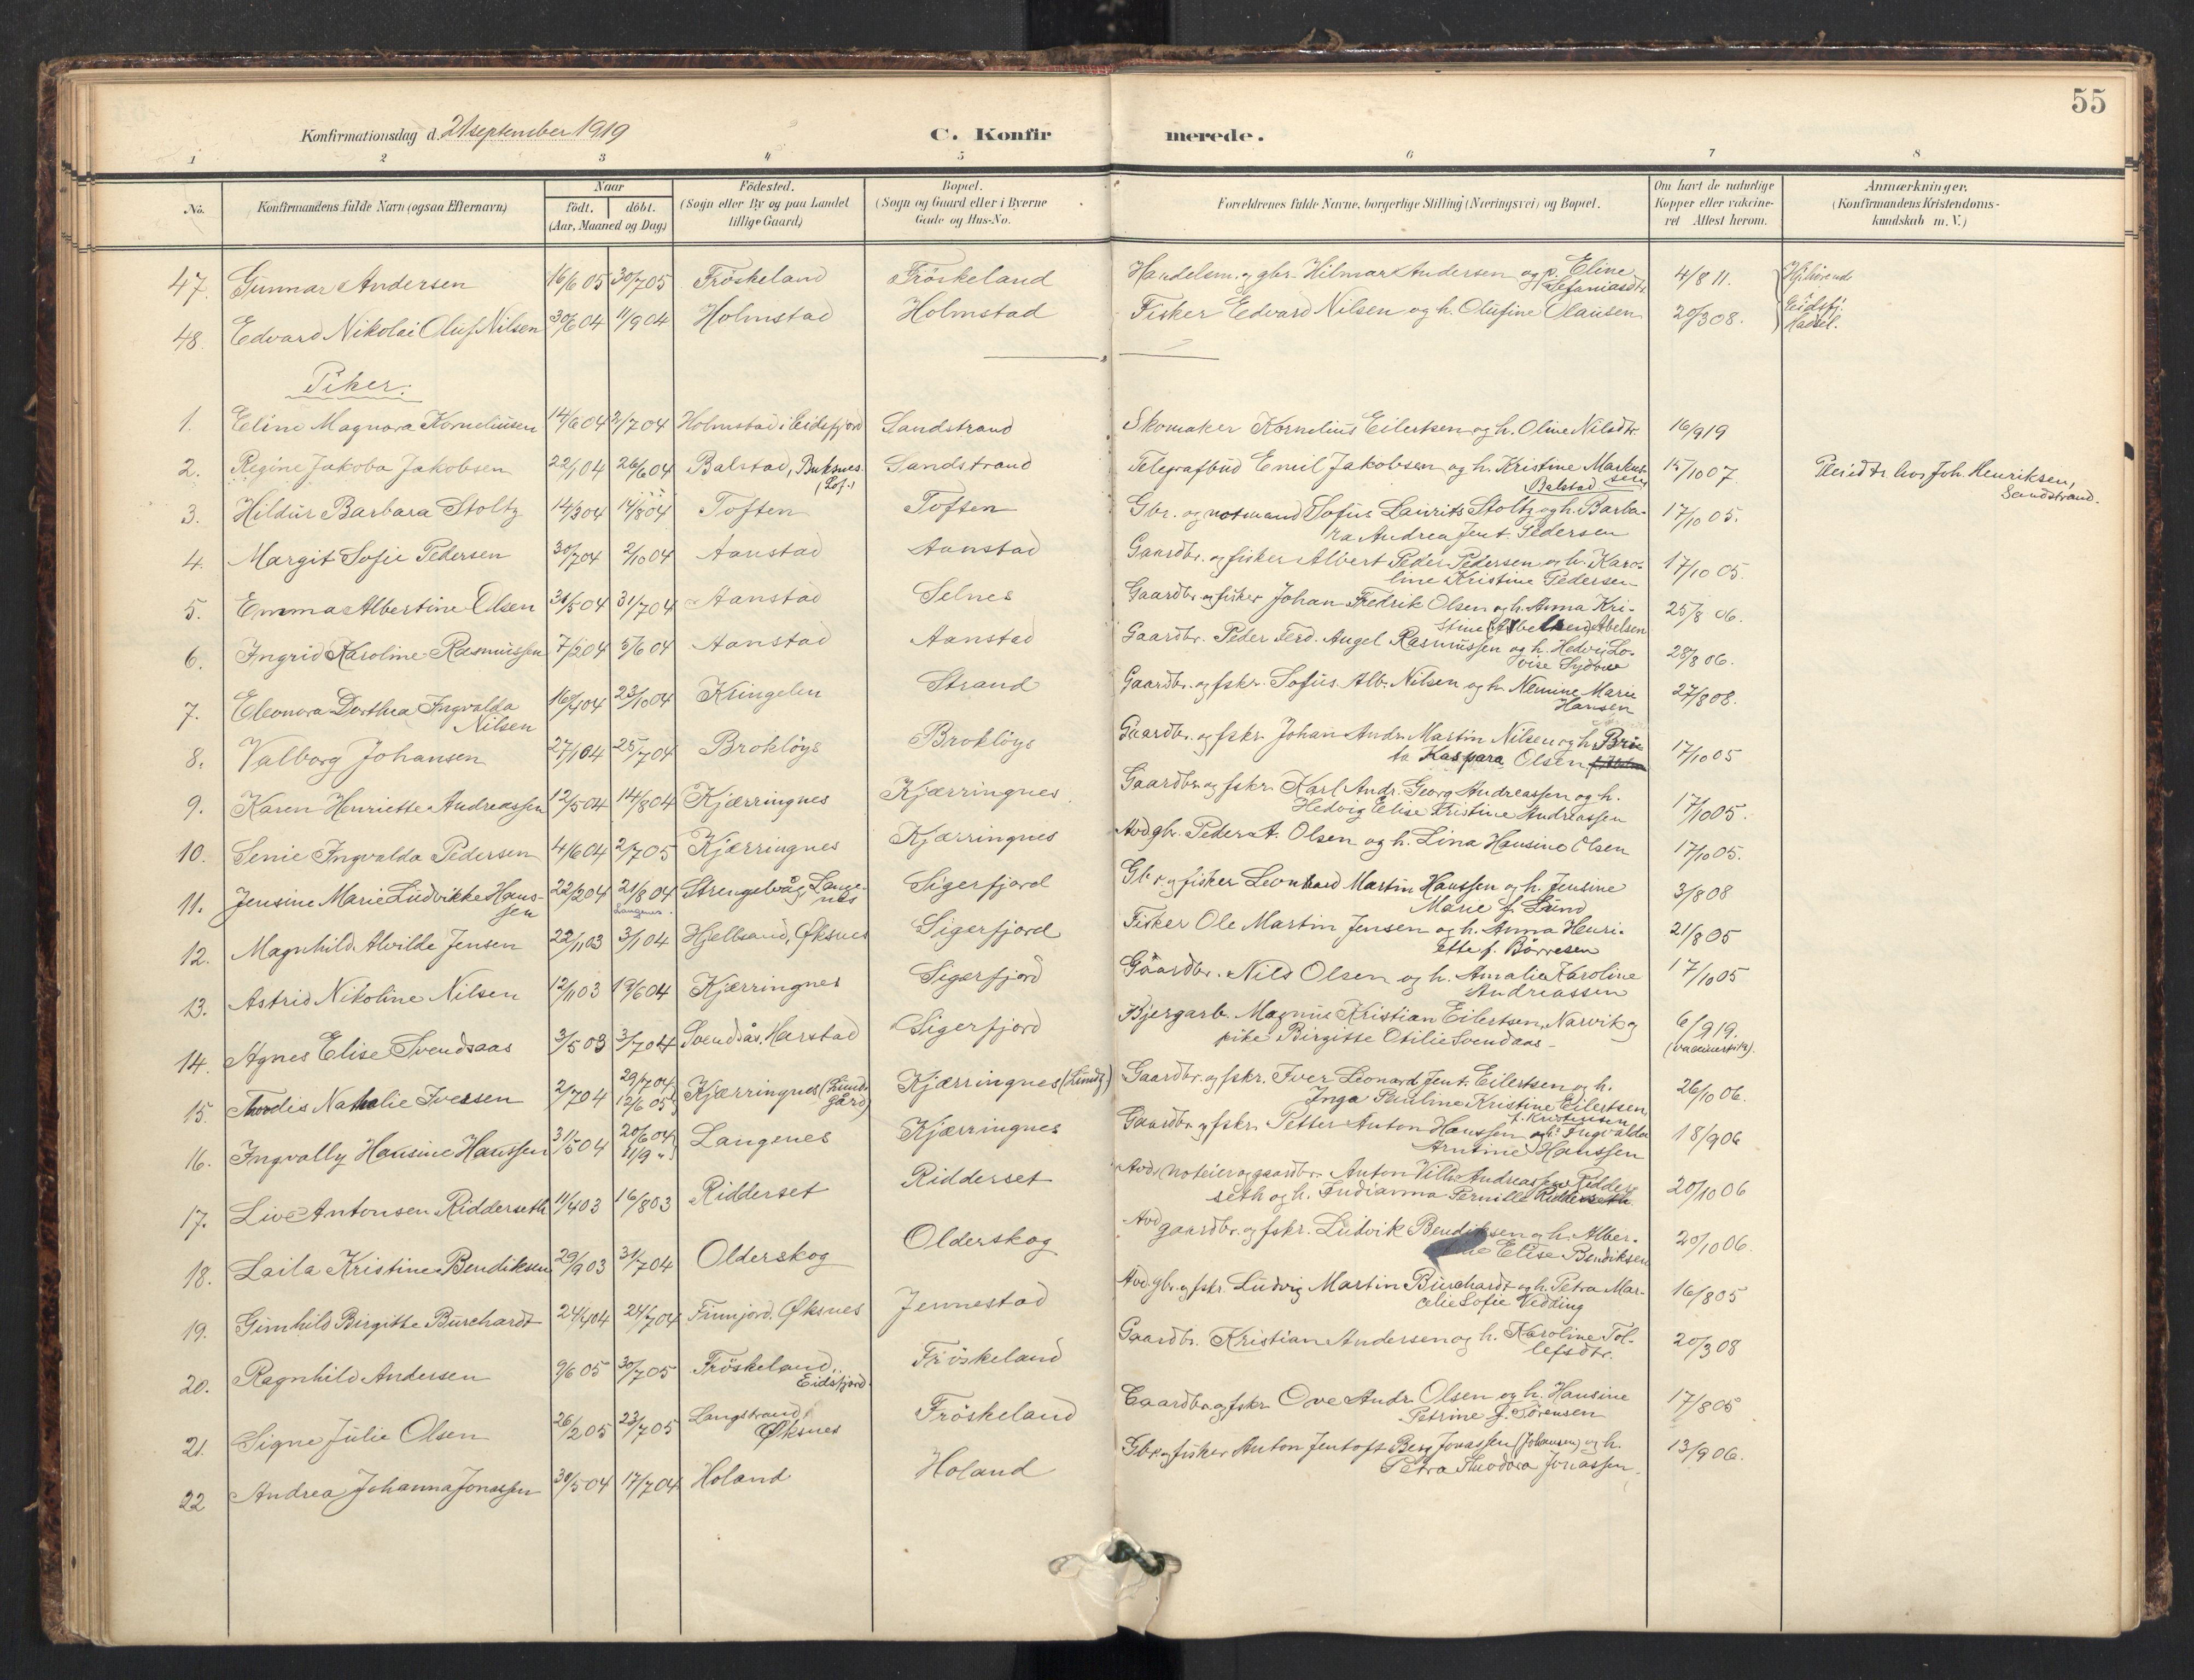 55
Konfirmationsdag d. 21 september 1919 C. Konfir merede.
1 2 3 4 5 6 7 8
No.
Konfirmandens fulde Navn (ogsaa Efternavn)
Naar
födt. döbt.
(Aar, Maaned og Dag)
Födested.
(Sogn eller By og paa Landet
tillige Gaard)
Bopæl.
(Sogn og Gaard eller i Byerne
Gade og Hus-No.
Forældrenes fulde Navne, borgerlige Stilling (Næringsvei) og Bopæl.
Om havt de naturlige
Kopper eller vakcine-
ret Attest herom.
Anmærkninger.
(Konfirmandens Kristendoms-
kundskab m. V.)
47. Gunnar Andersen 16/6 05 30/7 05 Fröskeland Fröskeland Handelsm. og gbr. Hilmar Andersen og p. Eline 4/8 11.
Stefaniasdtr.
48. Edvard Nikolai Oluf Nilsen 30/6 04 11/9 04 Holmstad Holmstad Fisker Edvard Nilsen og h. Olufine Olausen 20/3 08. Eidsfj.
Hadsel.
Piker.
1. Eline Magnora Korneliusen 14/6 04 3/7 04 Holmstad i Eidsfjord Sandstrand Skomaker Kornelius Eilertsen og h. Oline Nilsdtr. 16/9 19
2. Regine Jakoba Jakobsen 22/1 04 26/6 04 Balstad, Buksnes Sandstrand Telegrafbud Emil Jakobsen og h. Kristine Markus- 15/10 07. Pleiedtr. hos Joh. Henriksen,
(Lof.) Balstad sen Sandstrand.
3. Hildur Barbara Stoltz 14/3 04 14/8 04 Toften Toften Gbr. og notmand Sofus Laurits Stoltz og h. Barba- 17/10 05.
ra Andrea Jent. Pedersen
4. Margit Sofie Pedersen 30/7 04 2/10 04 Aanstad Aanstad Gaardbr. og fisker Albert Peder Pedersen og h. Karo- 17/10 05.
line Kristine Pedersen
5. Emma Albertine Olsen 31/5 04 31/7 04 Aanstad Selnes Gaardbr. og fisker Johan Fredrik Olsen og h. Anna Kri- 25/8 06.
stine Abelsen
6. Ingrid Karoline Rasmussen 7/2 04 5/6 04 Aanstad Aanstad Gaardbr. Peder Ferd. Angel Rasmussen og h. Hedvig Lo- 28/8 06.
vise
7. Eleonora Dorthea Ingvalda 16/4 04 23/10 04 Kringelen Strand Gaardbr. og fskr. Sofus Alb. Nilsen og h. Nemine Marie 27/8 08.
Nilsen Hansen
8. Valborg Johansen 27/1 04 25/7 04 Broklöys Broklöys Gaardbr. og fskr. Johan Andr. Martin Nilsen og h. Bri- 17/10 05
ta Kaspara Olsen
9. Karen Henriette Andreassen 12/5 04 14/8 04 Kjærringnes Kjærringnes Gaardbr. og fskr. Karl Andr. Georg Andreassen og h. 17/10 05.
Hedvig Elise Kristine Andreassen
10. Senie Ingvalda Pedersen 4/6 04 2/7 05 Kjærringnes Kjærringnes Avd gbr. Peder A. Olsen og h. Lina Hansine Olsen 17/10 05.
11. Jensine Marie Ludvikke Hans- 22/2 04 21/8 04 Strengelvåg, Lange- Sigerfjord Gbr. og fisker Leonhard Martin Hanssen og h. Jensine 3/8 08
sen Langenes. nes Marie f. Lund
12. Magnhild Alvilde Jensen 22/11 03 3/1 04 Hjellsand, Øksnes Sigerfjord Fisker Ole Martin Jensen og h. Anna Henri- 21/8 05
ette f. Börresen
13. Astrid Nikoline Nilsen 12/11 03 19/6 04 Kjærringnes Sigerfjord Gaardbr. Nils Olsen og h. Amalie Karoline 17/10 05
Andreassen
14. Agnes Elise Svendsaas 3/5 03 3/7 04 Svendsås, Harstad Sigerfjord Bjergarb. Magnus Kristian Eilertsen, Narvik og 6/9 19.
pike Birgitte Otilie Svendaas
15. Thordis Nathalie Iversen 2/7 04 29/7 04 12/6 05 Kjærringnes (Lund- Kjærringnes (Lundg.) Gaardbr. og fskr. Iver Leonard Jent. Eilertsen og h. 26/10 06.
gård) Inga Pauline Kristine Eilertsen
f. Kristensen
16. Ingvally Hansine Hanssen 31/5 04 20/6 04 11/9 " Langenes Kjærringnes Gaardbr. og fskr. Petter Anton Hanssen og h. Ingvalda 18/9 06
Arntine Hanssen
17. Live Antonsen Ridderseth 11/4 03 16/8 03 Ridderset Ridderset Avd. noteier og gaardbr. Anton Vilh. Andreassen Ridder- 20/10 06
seth og h. Indianna Pernille Ridderseth
18. Laila Kristine Bendiksen 29/9 03 31/7 04 Olderskog Olderskog Avd gaardbr. og fskr. Ludvik Bendiksen og h. Alber- 20/10 06.
tine Elise Bendiksen
19. Gunhild Birgitte Burchardt 24/4 04 24/7 04 Finnjord, Øksnes Jennestad Avd. gbr. og fskr. Ludvig Martin Burchardt og h. Petra Mar- 16/8 05
celie Sofie Vedding
20. Ragnhild Andersen 9/6 05 30/7 05 Fröskeland, Fröskeland Gaardbr. Kristian Andersen og h. Karoline Tol- 20/3 08
Eidsfjord. lefsdtr.
21. Signe Julie Olsen 26/2 05 23/7 05 Langstrand, Fröskeland Gaardbr. og fskr. Ove Andr. Olsen og h. Hansine 17/8 05
Øksnes Petrine f. Sörensen
22 Andrea Johanna Jonassen 30/5 04 17/7 04 Holand Holand Gbr. og fisker Anton Jentoft Berg Jonassen (Johansen) og h. 13/9 06.
Petra Theodora Jonassen.